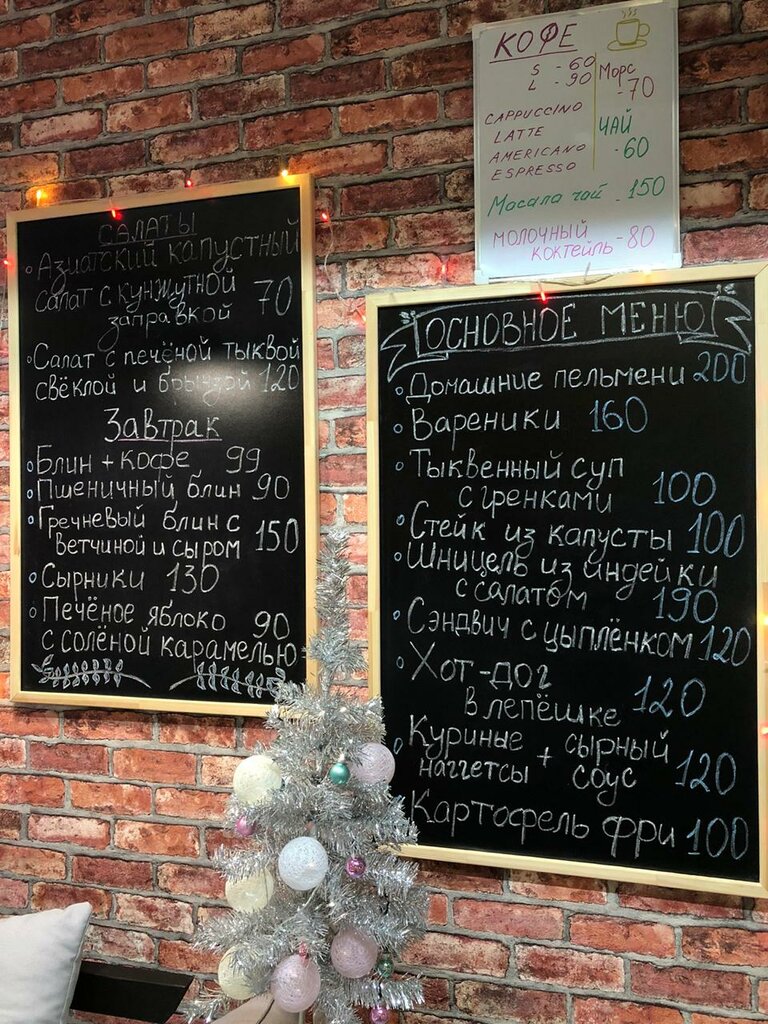 САЛАТЫ
Азиатский капустный
салат с кунжутной 70
заправкой
Салат с печёной тыквой
свёклой и брынзой 120
Завтрак
Блин + кофе 99
Пшеничный блин 90
Гречневый блин с
ветчиной и сыром 150
Сырники 130
Печёное яблоко 90
с солёной карамелью
КОФЕ
S - 60
L - 90
CAPPUCCINO
LATTE
AMERICANO
ESPRESSO
Морс
-70
ЧАЙ
-60
Масала чай - 150
МОЛОЧНЫЙ
КОКТЕЙЛЬ - 80
ОСНОВНОЕ МЕНЮ
Домашние пельмени 200
Вареники 160
Тыквенный суп
с гренками 100
Стейк из капусты 100
Шницель из индейки
с салатом 190
Сэндвич с цыплёнком 120
Хот-дог
в лепёшке 120
Куриные + сырный
наггетсы соус 120
Картофель фри 100